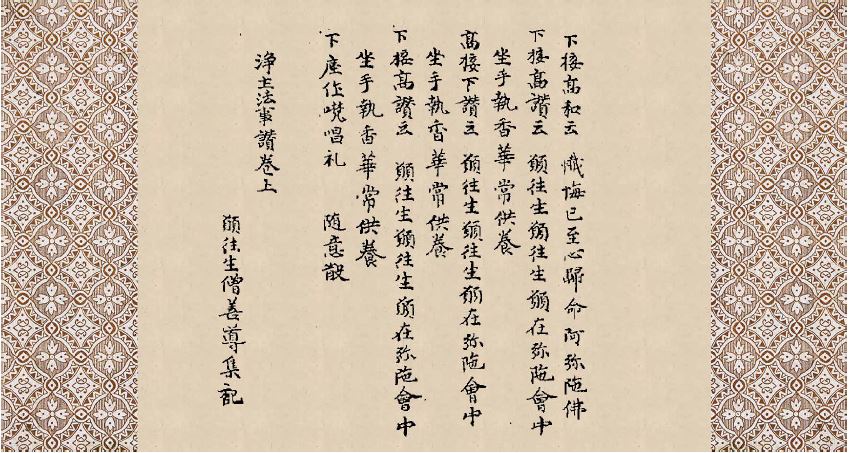 下接高和云 懺悔已至心歸命阿弥陁佛
下接高讃云 願往生願往生願在弥陁會中
坐手執香華常供養
高接下讃云 願往生願往生願在弥陁會中
坐手執香華常供養
下接高讃云 願往生願往生願在弥陁會中
坐手執香華常供養
下座作唄唱礼 随意散
浄土法事讃卷上
願往生僧善導集記